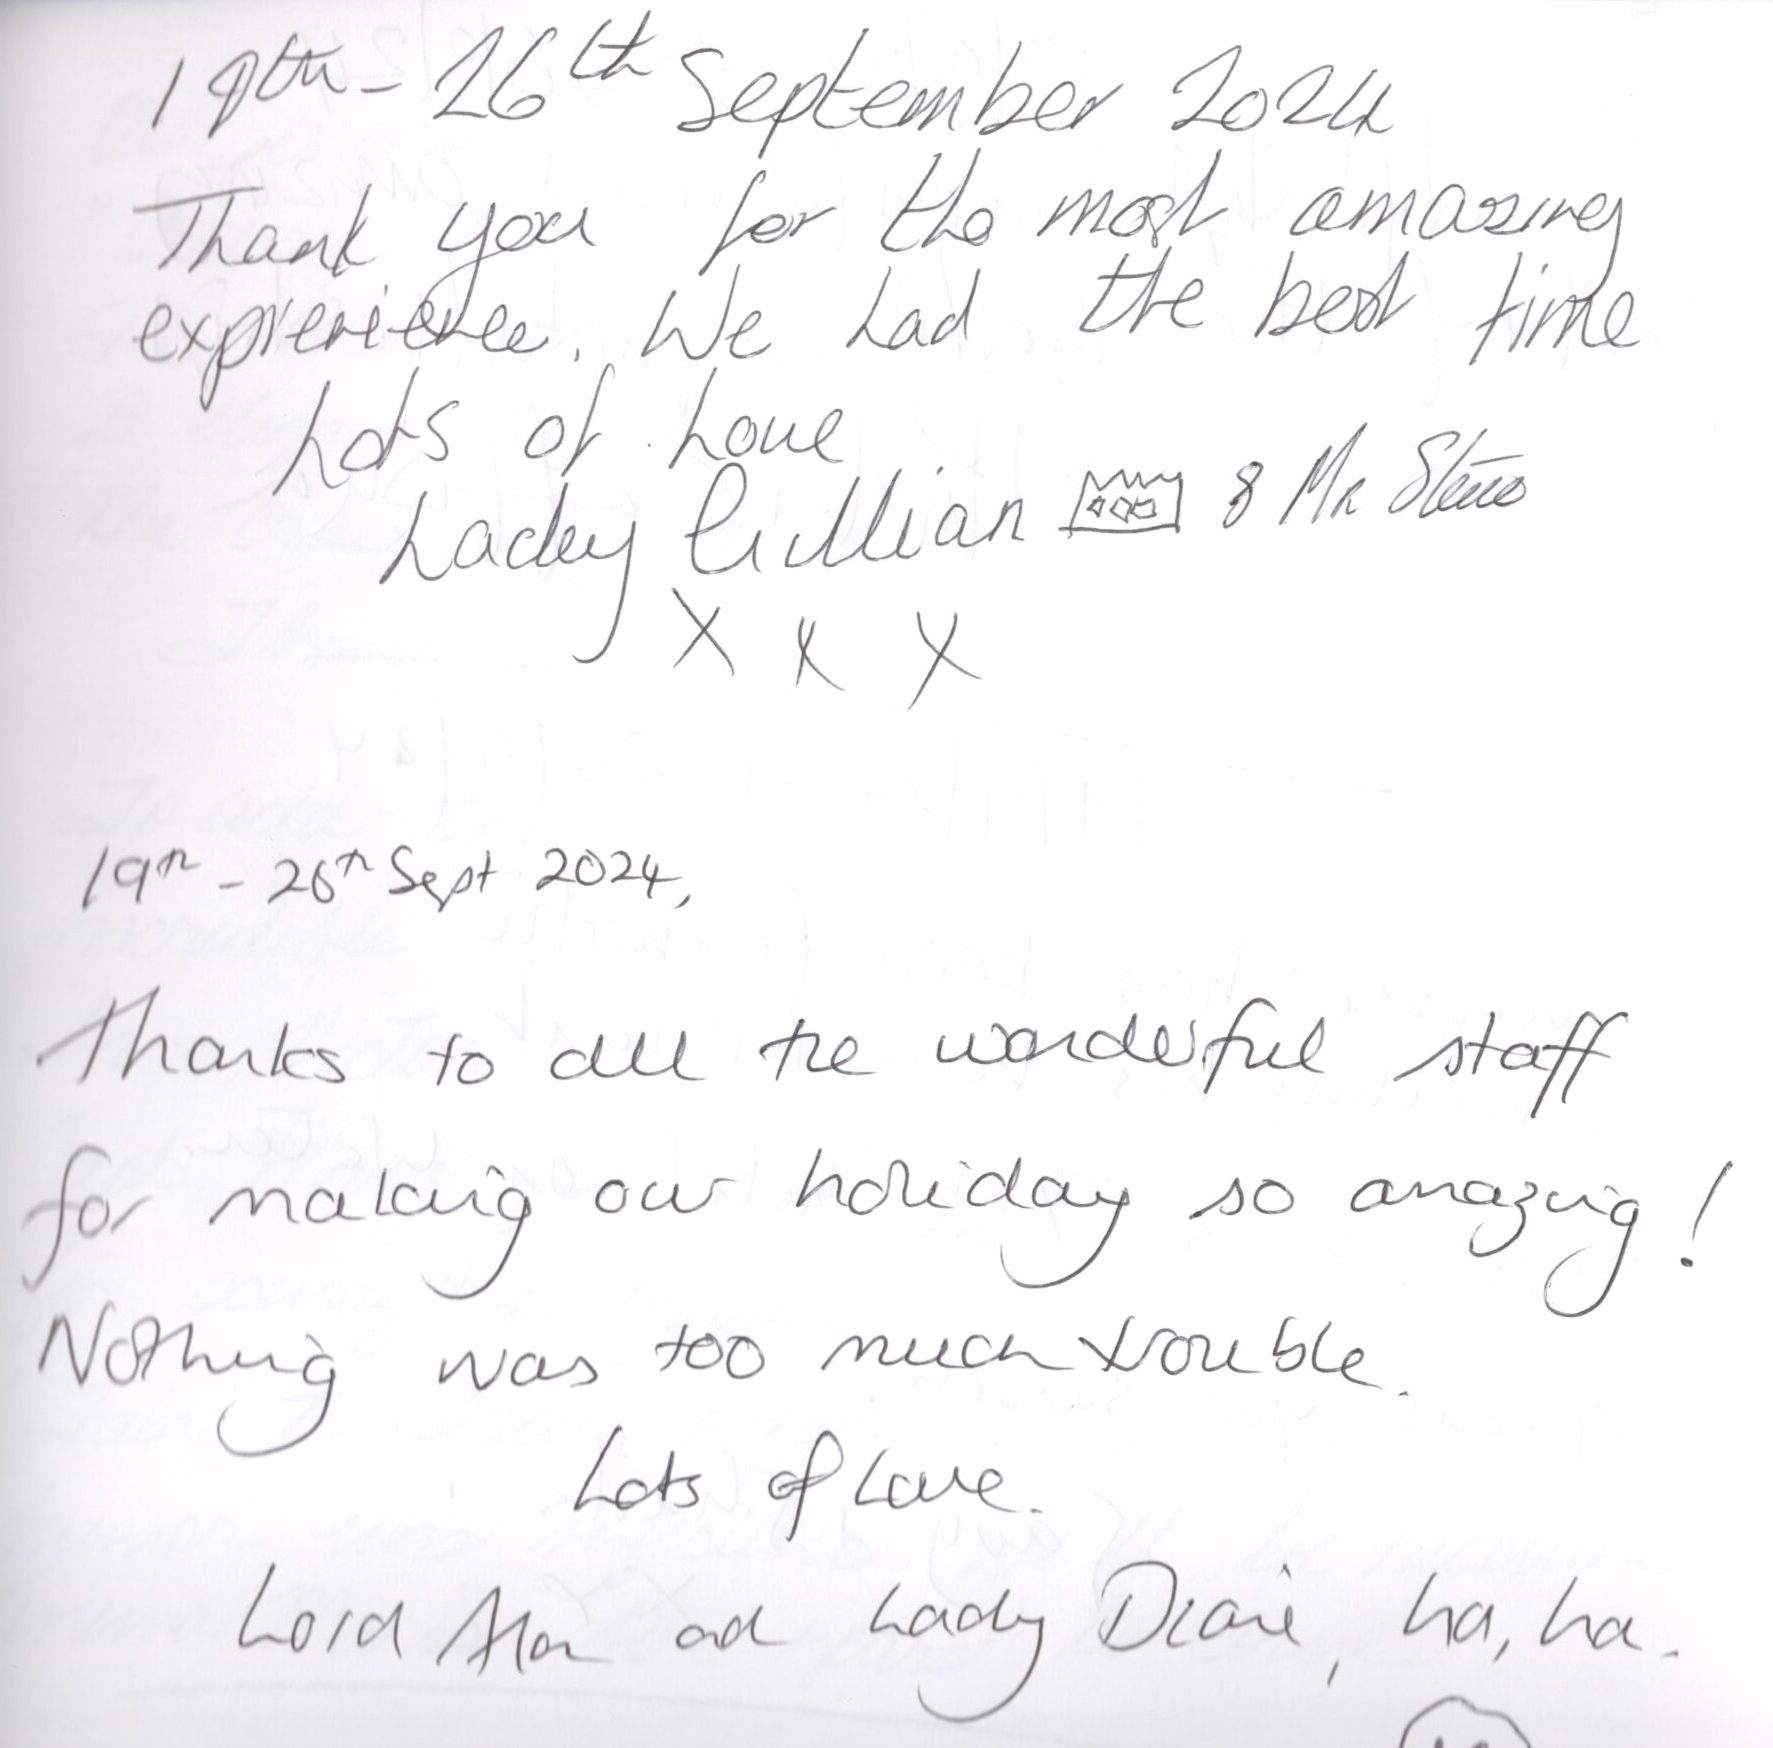 19th - 26th September 2024
Thank you for the most amazing
exprerience. We had the best time
Lots of Love
Ladey Gillian & Mr Steve
X X X
19th - 26th Sept 2024,
Thanks to all the wonderful staff
for making our holiday so amazing!
Nothing was too much trouble.
Lots of Love.
Lord Alan and Lady Diane, ha, ha.